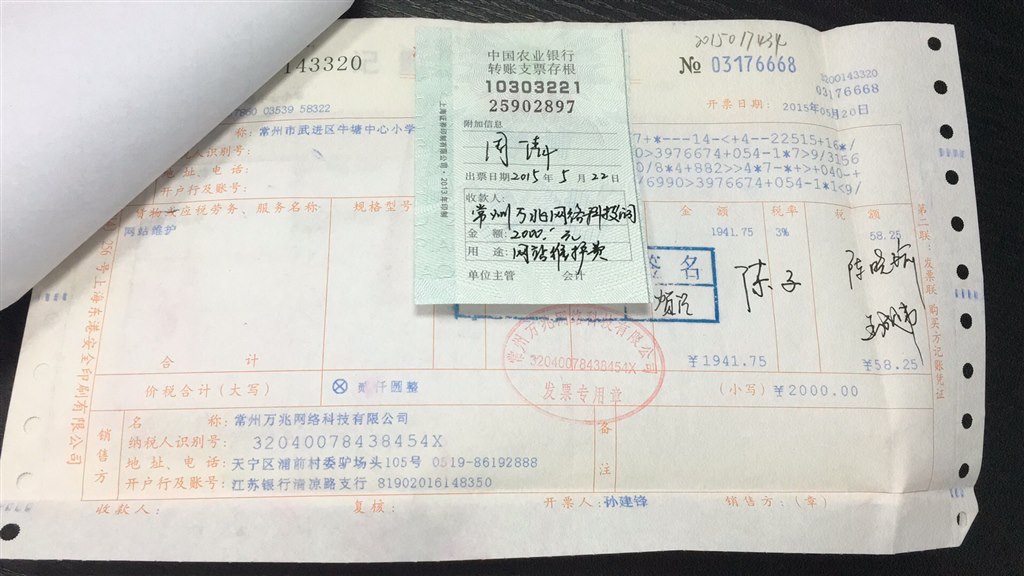 2015017434
143320
№ 03176668
3200143320
03176668
开票日期: 2015年05月20日
03539 58322
中国农业银行
转账支票存根
10303221
25902897
附加信息
周靖
出票日期 2015 年 5 月 22 日
收款人:
常州万兆网络科技公司
金 额: 2000.- 元
用 途: 网站维护费
单位主管 会计
上海证券印制有限公司·2013年印制
称: 常州市武进区牛塘中心小学
纳税人识别号:
地 址、电 话:
开户行及账号:
7+*---14-<+4--22515+16*/
>3976674+054-1*7>9/3156
0/8*4+882>>4*7-*++040-+
/6990>3976674+054-1*1<9/
货物或应税劳务、服务名称 规格型号 金 额 税率 税 额
网站维护 1941.75 3% 58.25
签名
合 计 ¥1941.75 ¥58.25
价税合计(大写) ⊗ 贰仟圆整 (小写) ¥2000.00
常州万兆网络科技有限公司
32040078438454X
发票专用章
销售方
名 称: 常州万兆网络科技有限公司
纳税人识别号: 32040078438454X
地 址、电 话: 天宁区浦前村委驴场头105号 0519-86192888
开户行及账号: 江苏银行清凉路支行 81902016148350
备注
收款人: 复核: 开票人: 孙建锋 销售方:(章)
第二联:发票联 购买方记账凭证
256号上海东港安全印刷有限公司